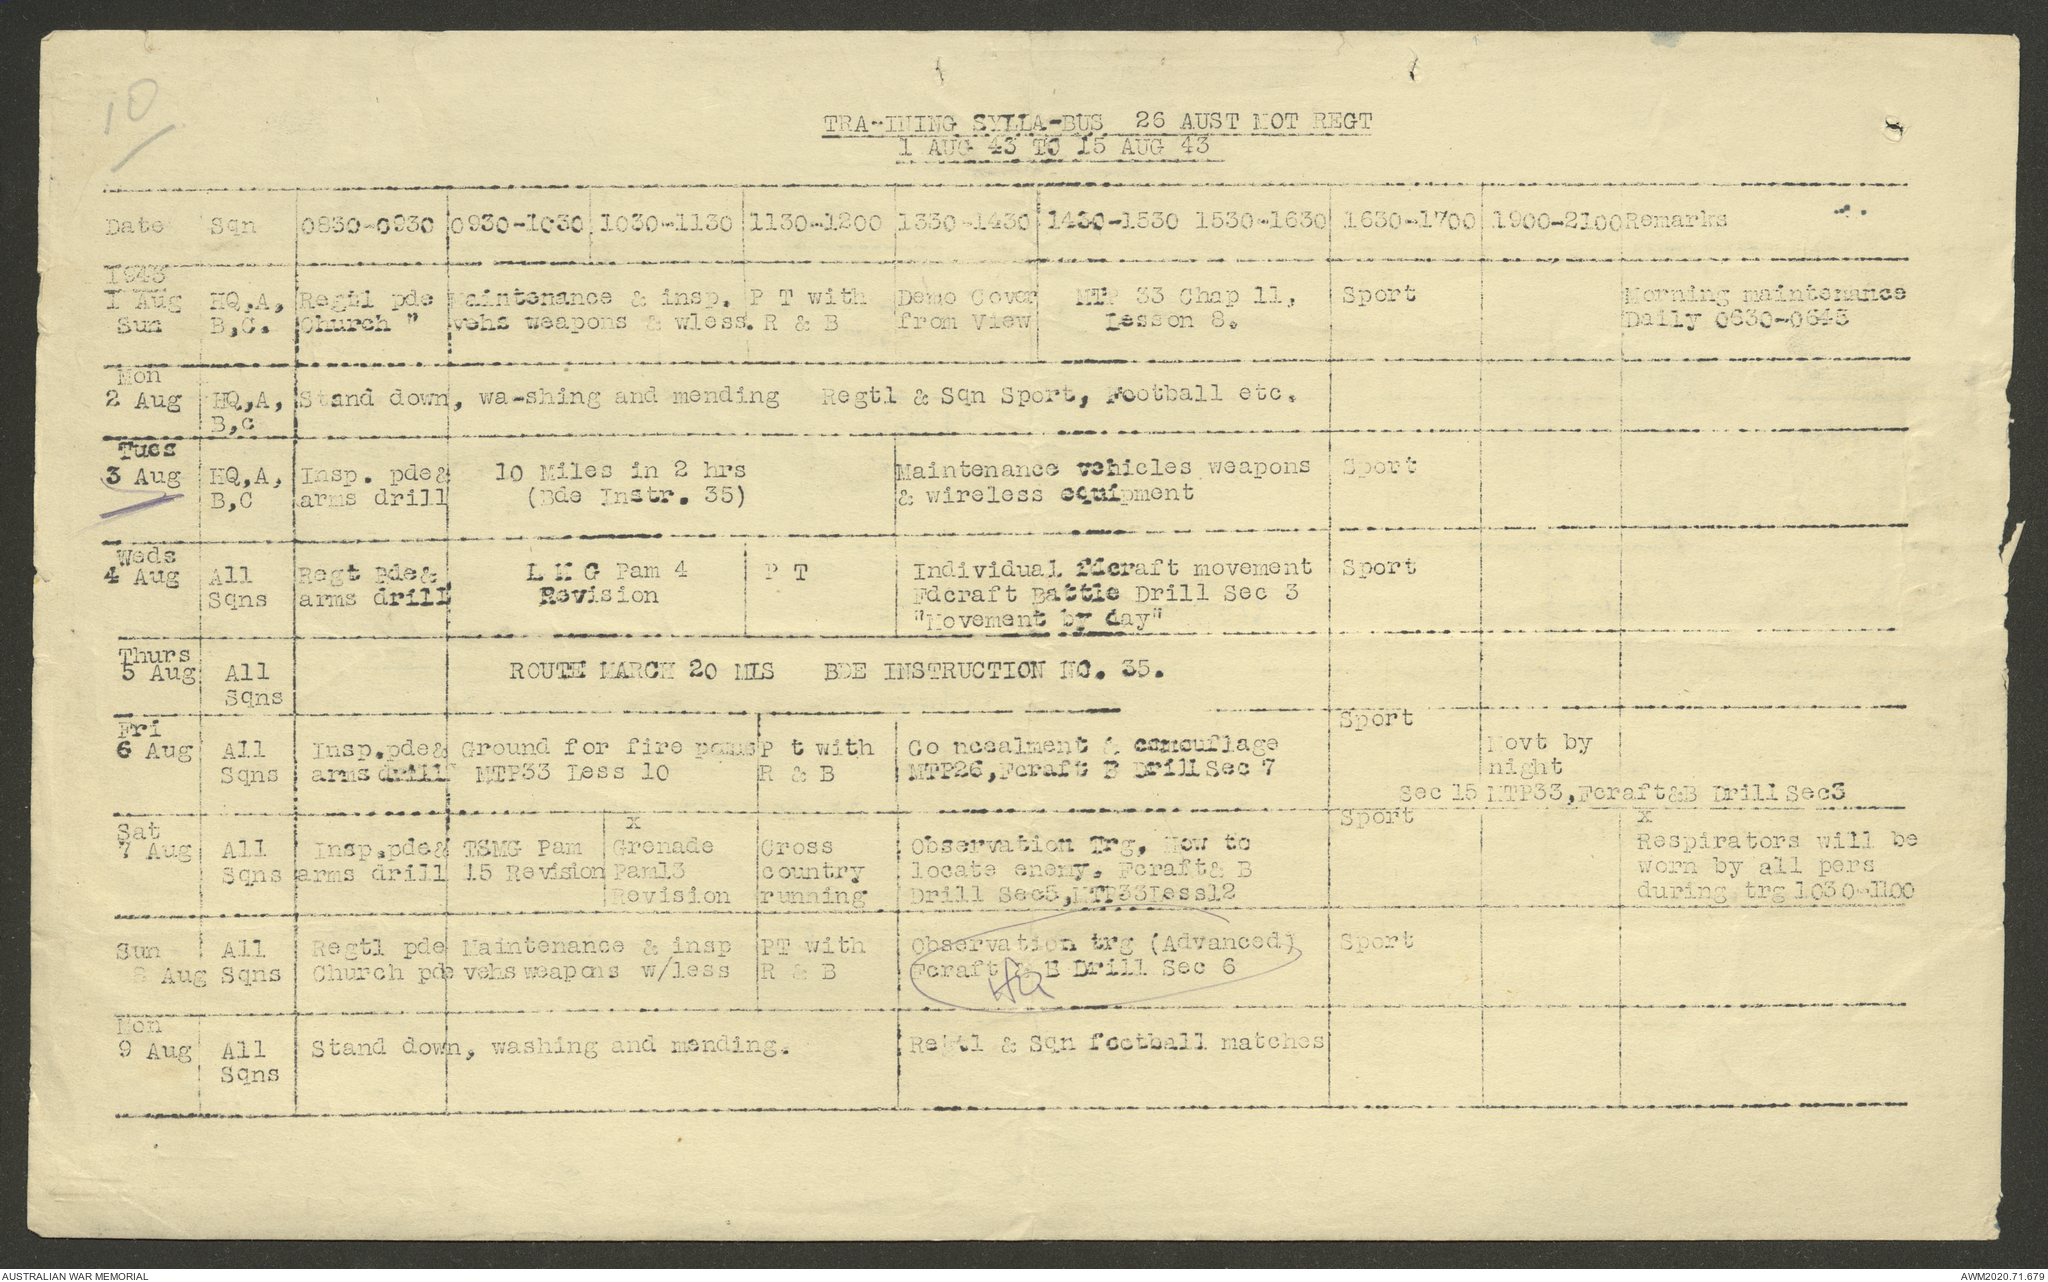 10
TRA-INING SYLLA-BUS 26 AUST MOT REGT
1 AUG 43 TO 15 AUG 43
Date Sqn 0830-0930 0930-1030 1030-1130 1130-1200 1330-1430 1430-1530 1530-1630 1630-1700 1900-2100 Remarks
1943
1 Aug HQ,A, Regtl pde Maintenance & insp. P T with Demo Cover MTP 33 Chap 11, Sport Morning maintenance
Sun B,C. Church " vehs weapons & wless. R & B from View Lesson 8. Daily 0630-0645
Mon
2 Aug HQ,A, Stand down, wa-shing and mending Regtl & Sqn Sport, Football etc.
B,C
Tues
3 Aug HQ,A, Insp. pde& 10 Miles in 2 hrs Maintenance vehicles weapons Sport
B,C arms drill (Bde Instr. 35) & wireless equipment
Weds
4 Aug All Regt Pde& L M G Pam 4 P T Individual fdcraft movement Sport
Sqns arms drill Revision Fdcraft Battle Drill Sec 3
"Movement by day"
Thurs
5 Aug All ROUTE MARCH 20 MLS BDE INSTRUCTION NO. 35.
Sqns
Fri Sport
6 Aug All Insp.pde& Ground for fire posns P t with Co ncealment & camouflage Movt by
Sqns arms drill MTP33 Less 10 R & B MTP26,Fcraft B Drill Sec 7 night
Sec 15 MTP33,Fcraft&B Drill Sec3
Sat x Sport x
7 Aug All Insp.pde& TSMG Pam Grenade Cross Observation Trg, How to Respirators will be
Sqns arms drill 15 Revision Pam13 country locate enemy. Fcraft& B worn by all pers
Revision running Drill Sec5,MTP33Less12 during trg 1030-1100
Sun All Regtl pde Maintenance & insp PT with Observation trg (Advanced) Sport
8 Aug Sqns Church pde vehs weapons w/less R & B Fcraft & B Drill Sec 6
Mon
9 Aug All Stand down, washing and mending. Regtl & Sqn football matches
Sqns
AUSTRALIAN WAR MEMORIAL AWM2020.71.679